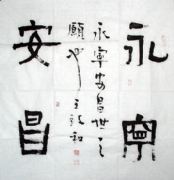 永寧
安昌
永寧安昌世之
願也